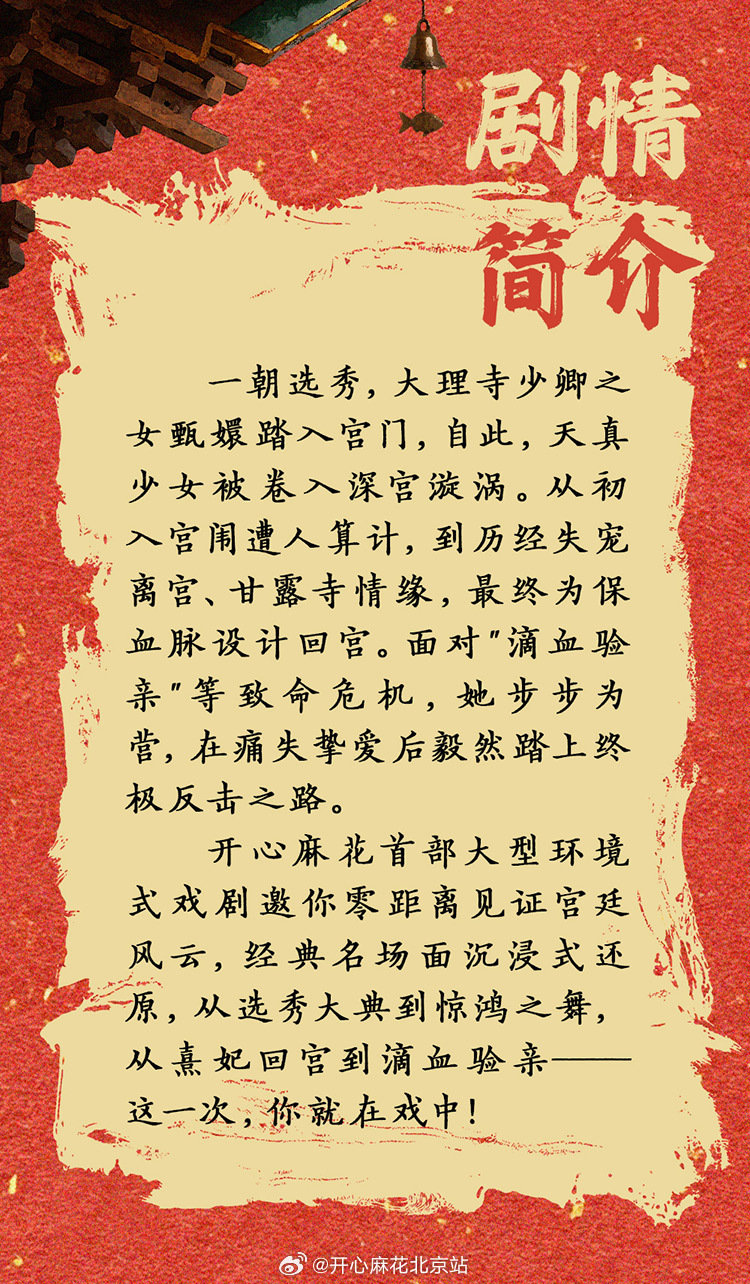 剧情
简介
一朝选秀，大理寺少卿之
女甄嬛踏入宫门，自此，天真
少女被卷入深宫漩涡。从初
入宫闱遭人算计，到历经失宠
离宫、甘露寺情缘，最终为保
血脉设计回宫。面对"滴血验
亲"等致命危机，她步步为
营，在痛失挚爱后毅然踏上终
极反击之路。
开心麻花首部大型环境
式戏剧邀你零距离见证宫廷
风云，经典名场面沉浸式还
原，从选秀大典到惊鸿之舞，
从熹妃回宫到滴血验亲——
这一次，你就在戏中！
@开心麻花北京站